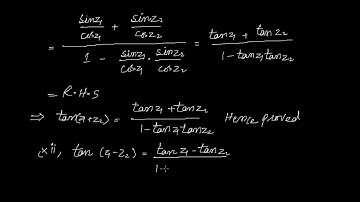 = sinz₁/cosz₁ + sinz₂/cosz₂ / 1 - sinz₁/cosz₁ · sinz₂/cosz₂ = tanz₁ + tanz₂ / 1 - tanz₁tanz₂
= R·H·S
⇒ tan(z₁+z₂) = tanz₁+tanz₂ / 1-tanz₁tanz₂ Hence proved
(xii, tan (z₁-z₂) = tanz₁-tanz₂ / 1+